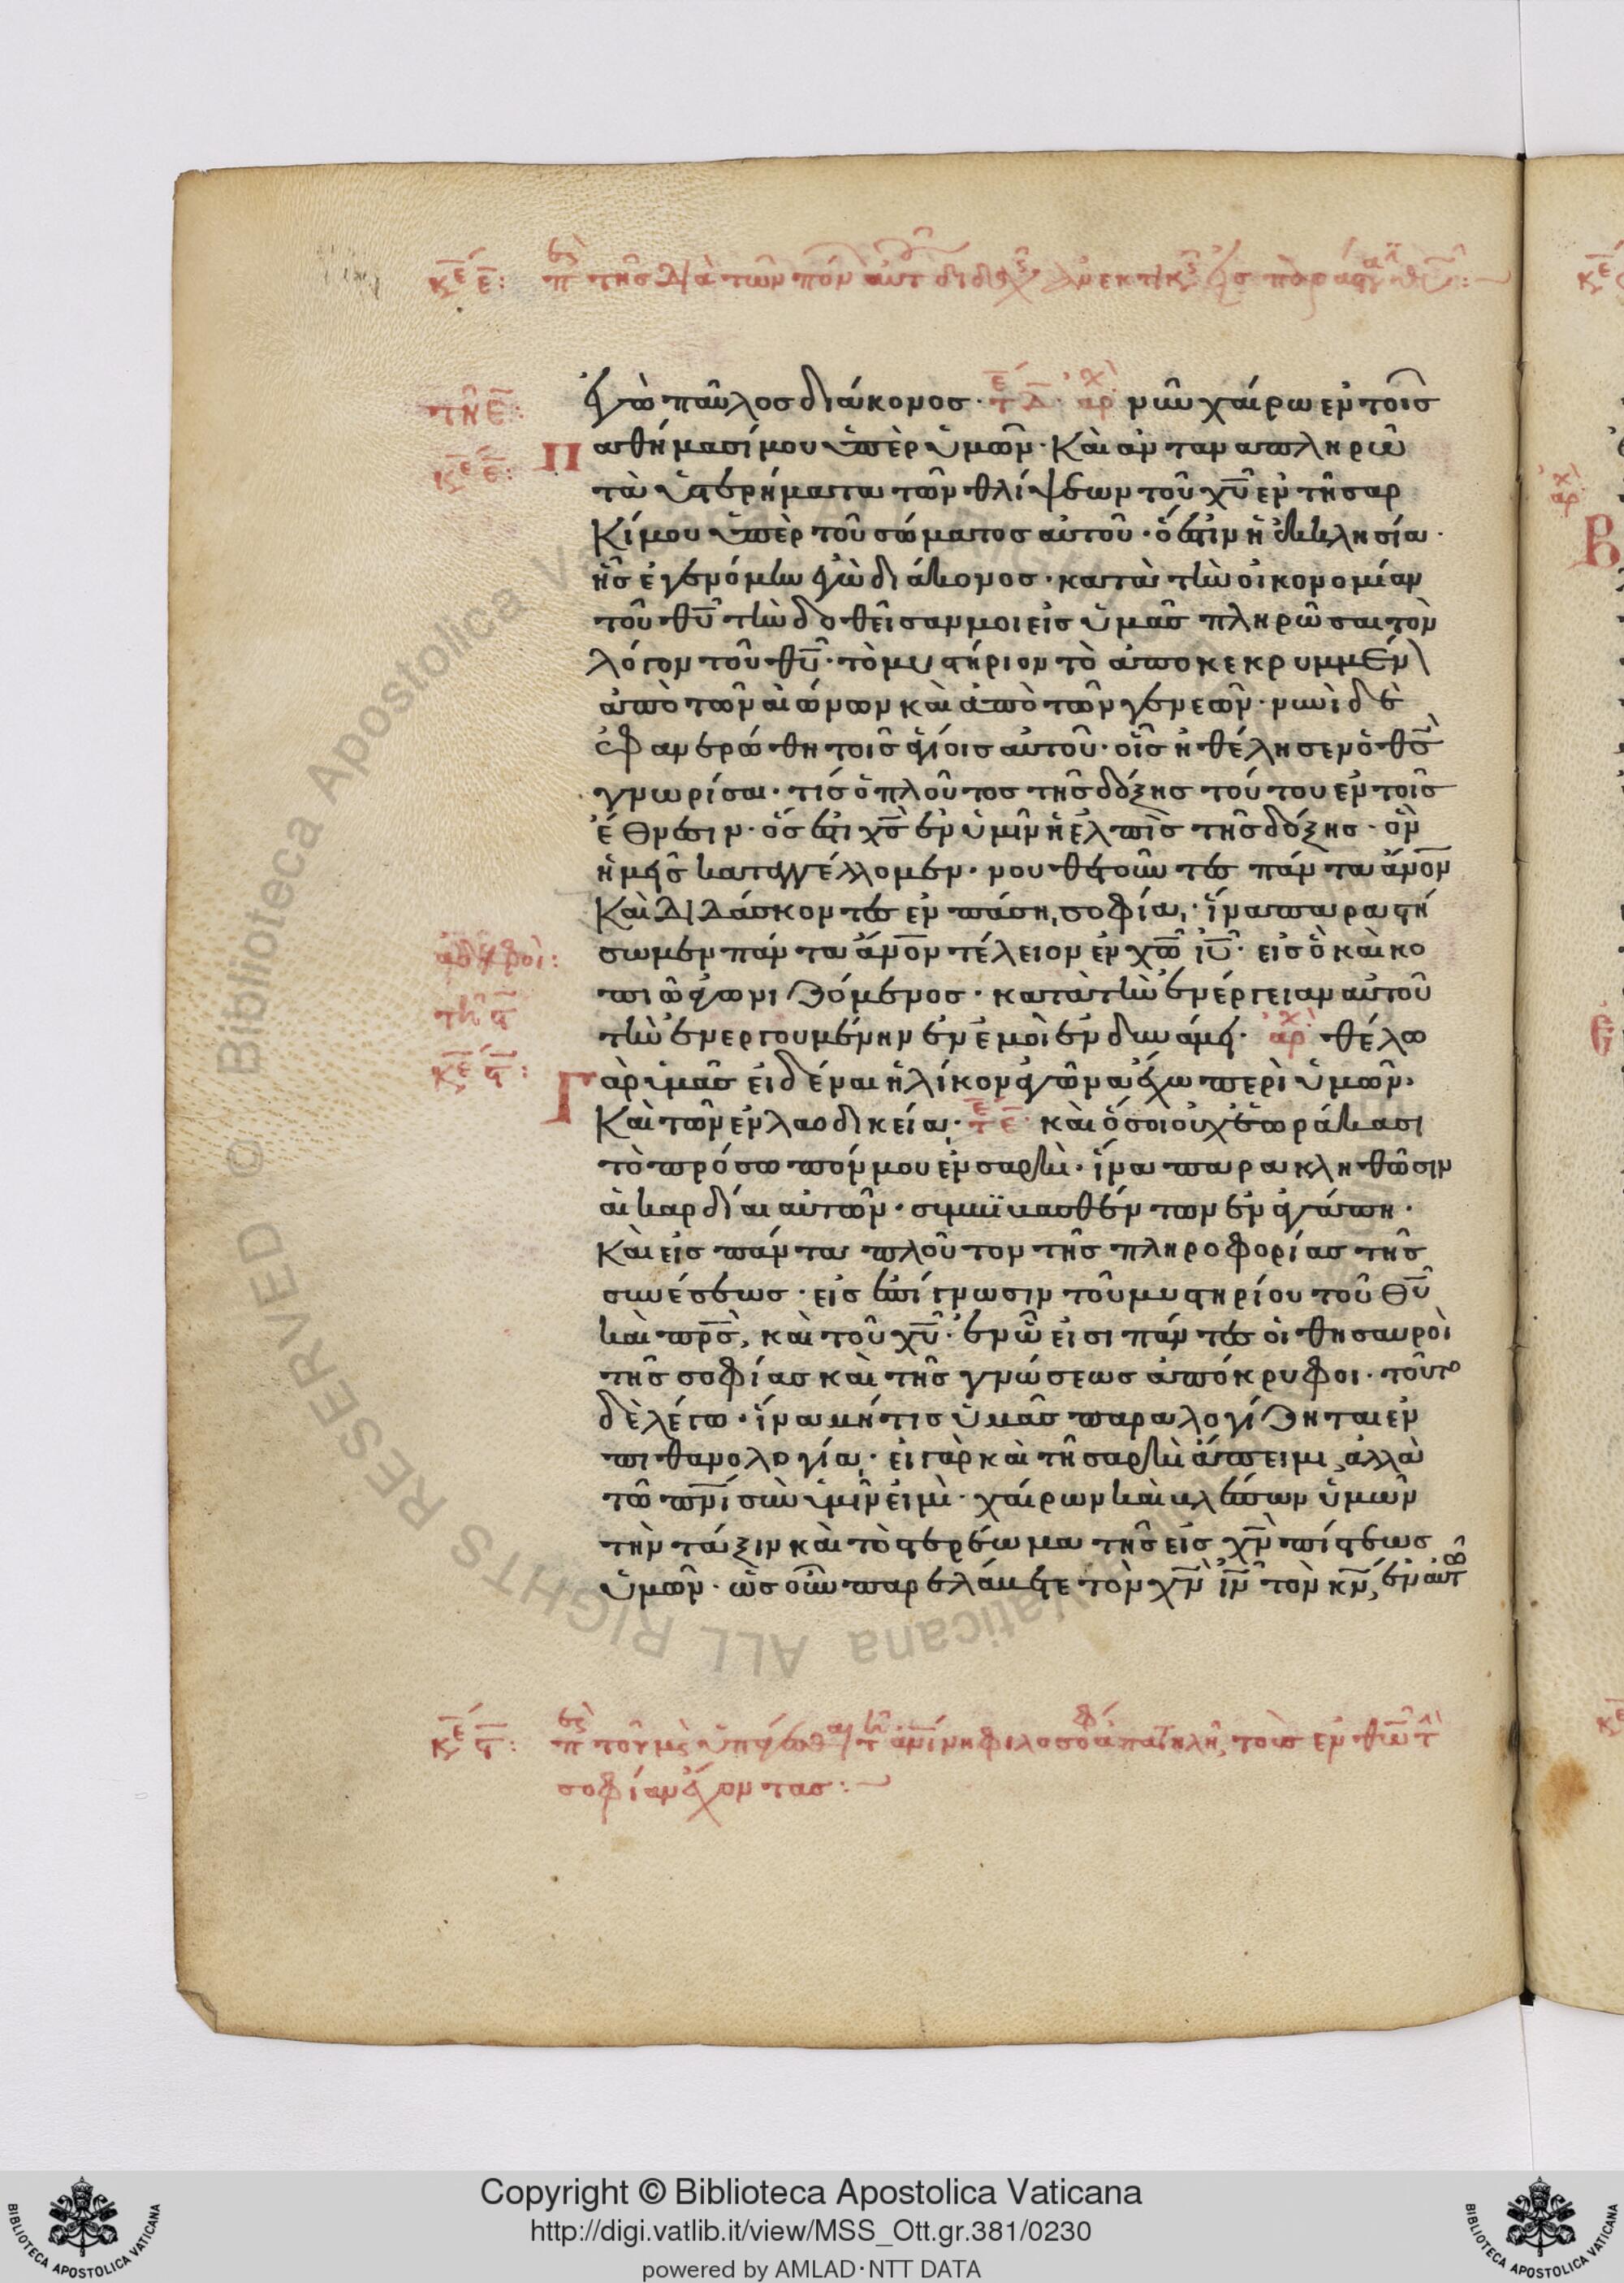 κε ε: περὶ τῆς διὰ τῶν
ἐγὼ παῦλος διάκονος· τε δ· ἀρχ νῦν χαίρω ἐν τοῖς
τῆ ε:
Παθήμασί μου ὑπὲρ ὑμῶν· Καὶ ἀνταναπληρῶ
κε ε:
τὰ ὑστερήματα τῶν θλίψεων τοῦ χυ ἐν τῆ σαρ
Κί μου ὑπὲρ τοῦ σώματος αὐτοῦ· ὅ ἐστιν ἡ ἐκκλησία·
ἧς ἐγενόμην ἐγὼ διάκονος· κατὰ τὴν οἰκονομίαν
τοῦ θυ τὴν δοθεῖσαν μοι εἰς ὑμᾶς πληρῶσαι τὸν
λόγον τοῦ θυ· τὸ μυστήριον τὸ ἀποκεκρυμμέν
ἀπὸ τῶν αἰώνων καὶ ἀπὸ τῶν γενεῶν· νυνὶ δὲ
ἐφανερώθη τοῖς ἁγίοις αὐτοῦ· οἷς ἠθέλησεν ὁ θς
γνωρίσαι· τίς ὁ πλοῦτος τῆς δόξης τούτου ἐν τοῖς
ἔθνεσιν· ὅς ἐστι χς ἐν ὑμῖν ἡ ἐλπὶς τῆς δόξης· ὃν
ἡμεῖς καταγγέλλομεν· νουθετοῦντες πάντα ἄνον
Καὶ διδάσκοντες ἐν πάση σοφία· ἵνα παραστή
σωμεν πάντα ἄνον τέλειον ἐν χω ιυ· εἰς ὃ καὶ κο
ἀδελφοί:
πιῶ ἀγωνιζόμενος· κατὰ τὴν ἐνέργειαν αὐτοῦ
τῆ ϛ
τὴν ἐνεργουμένην ἐν ἐμοὶ ἐν δυνάμει· ἀρχ θέλω
κε ϛ:
Γὰρ ὑμᾶς εἰδέναι ἡλίκον ἀγῶνα ἔχω περὶ ὑμῶν·
Καὶ τῶν ἐν λαοδικεία· τε ε· καὶ ὅσοι οὐχ ἑωράκασι
τὸ πρόσωπόν μου ἐν σαρκὶ· ἵνα παρακληθῶσιν
αἱ καρδίαι αὐτῶν· συμβιβασθέντων ἐν ἀγάπη·
Καὶ εἰς πάντα πλοῦτον τῆς πληροφορίας τῆς
συνέσεως· εἰς ἐπίγνωσιν τοῦ μυστηρίου τοῦ θυ
καὶ πρς, καὶ τοῦ χυ· ἐν ῶ εἰσι πάντες οἱ θησαυροὶ
τῆς σοφίας καὶ τῆς γνώσεως ἀπόκρυφοι· τοῦτο
δὲ λέγω· ἵνα μή τις ὑμᾶς παραλογίζηται ἐν
πιθανολογία· εἰ γὰρ καὶ τῆ σαρκὶ ἄπειμι, ἀλλὰ
τῶ πνι σὺν ὑμῖν εἰμὶ· χαίρων καὶ βλέπων ὑμῶν
τὴν τάξιν καὶ τὸ στερέωμα τῆς εἰς χν πίστεως
ὑμῶν· ὡς οὖν παρελάβετε τὸν χν ιν τὸν κν, ἐν αὐτῶ
κε ϛ: περὶ τοῦ μὴ ἀνίνη φιλοσοφία ἀπατηλῆ, τοὺς ἐν θω τ
σοφίαν ἔχοντας:
Copyright © Biblioteca Apostolica Vaticana
http://digi.vatlib.it/view/MSS_Ott.gr.381/0230
powered by AMLAD·NTT DATA